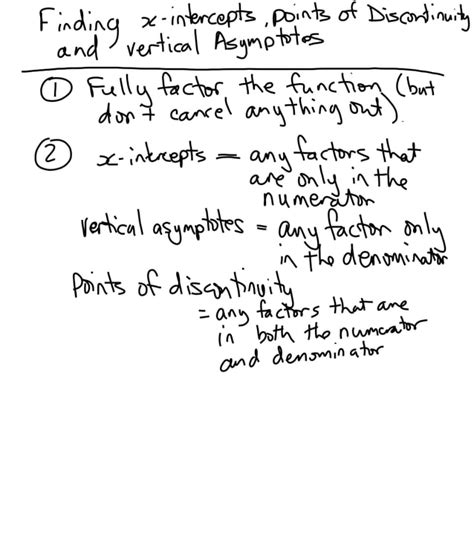 Finding x-intercepts, points of Discontinuity
and vertical Asymptotes
① Fully factor the function (but
don't cancel anything out).
② x-intercepts = any factors that
are only in the
numerator
vertical asymptotes = any factor only
in the denominator
Points of discontinuity
= any factors that are
in both the numerator
and denominator